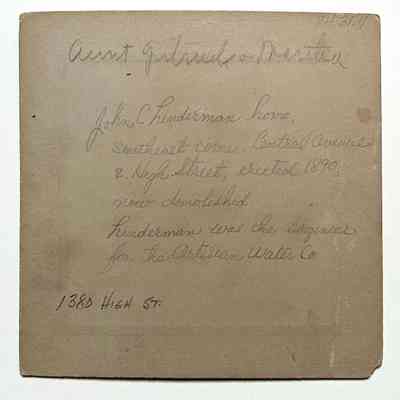 Aunt
John C Linderman home,
Southeast corner Central Avenue
& High Street, erected 1890,
now demolished
Linderman was the engineer
for the Artesian Water Co
1380 HIGH ST.